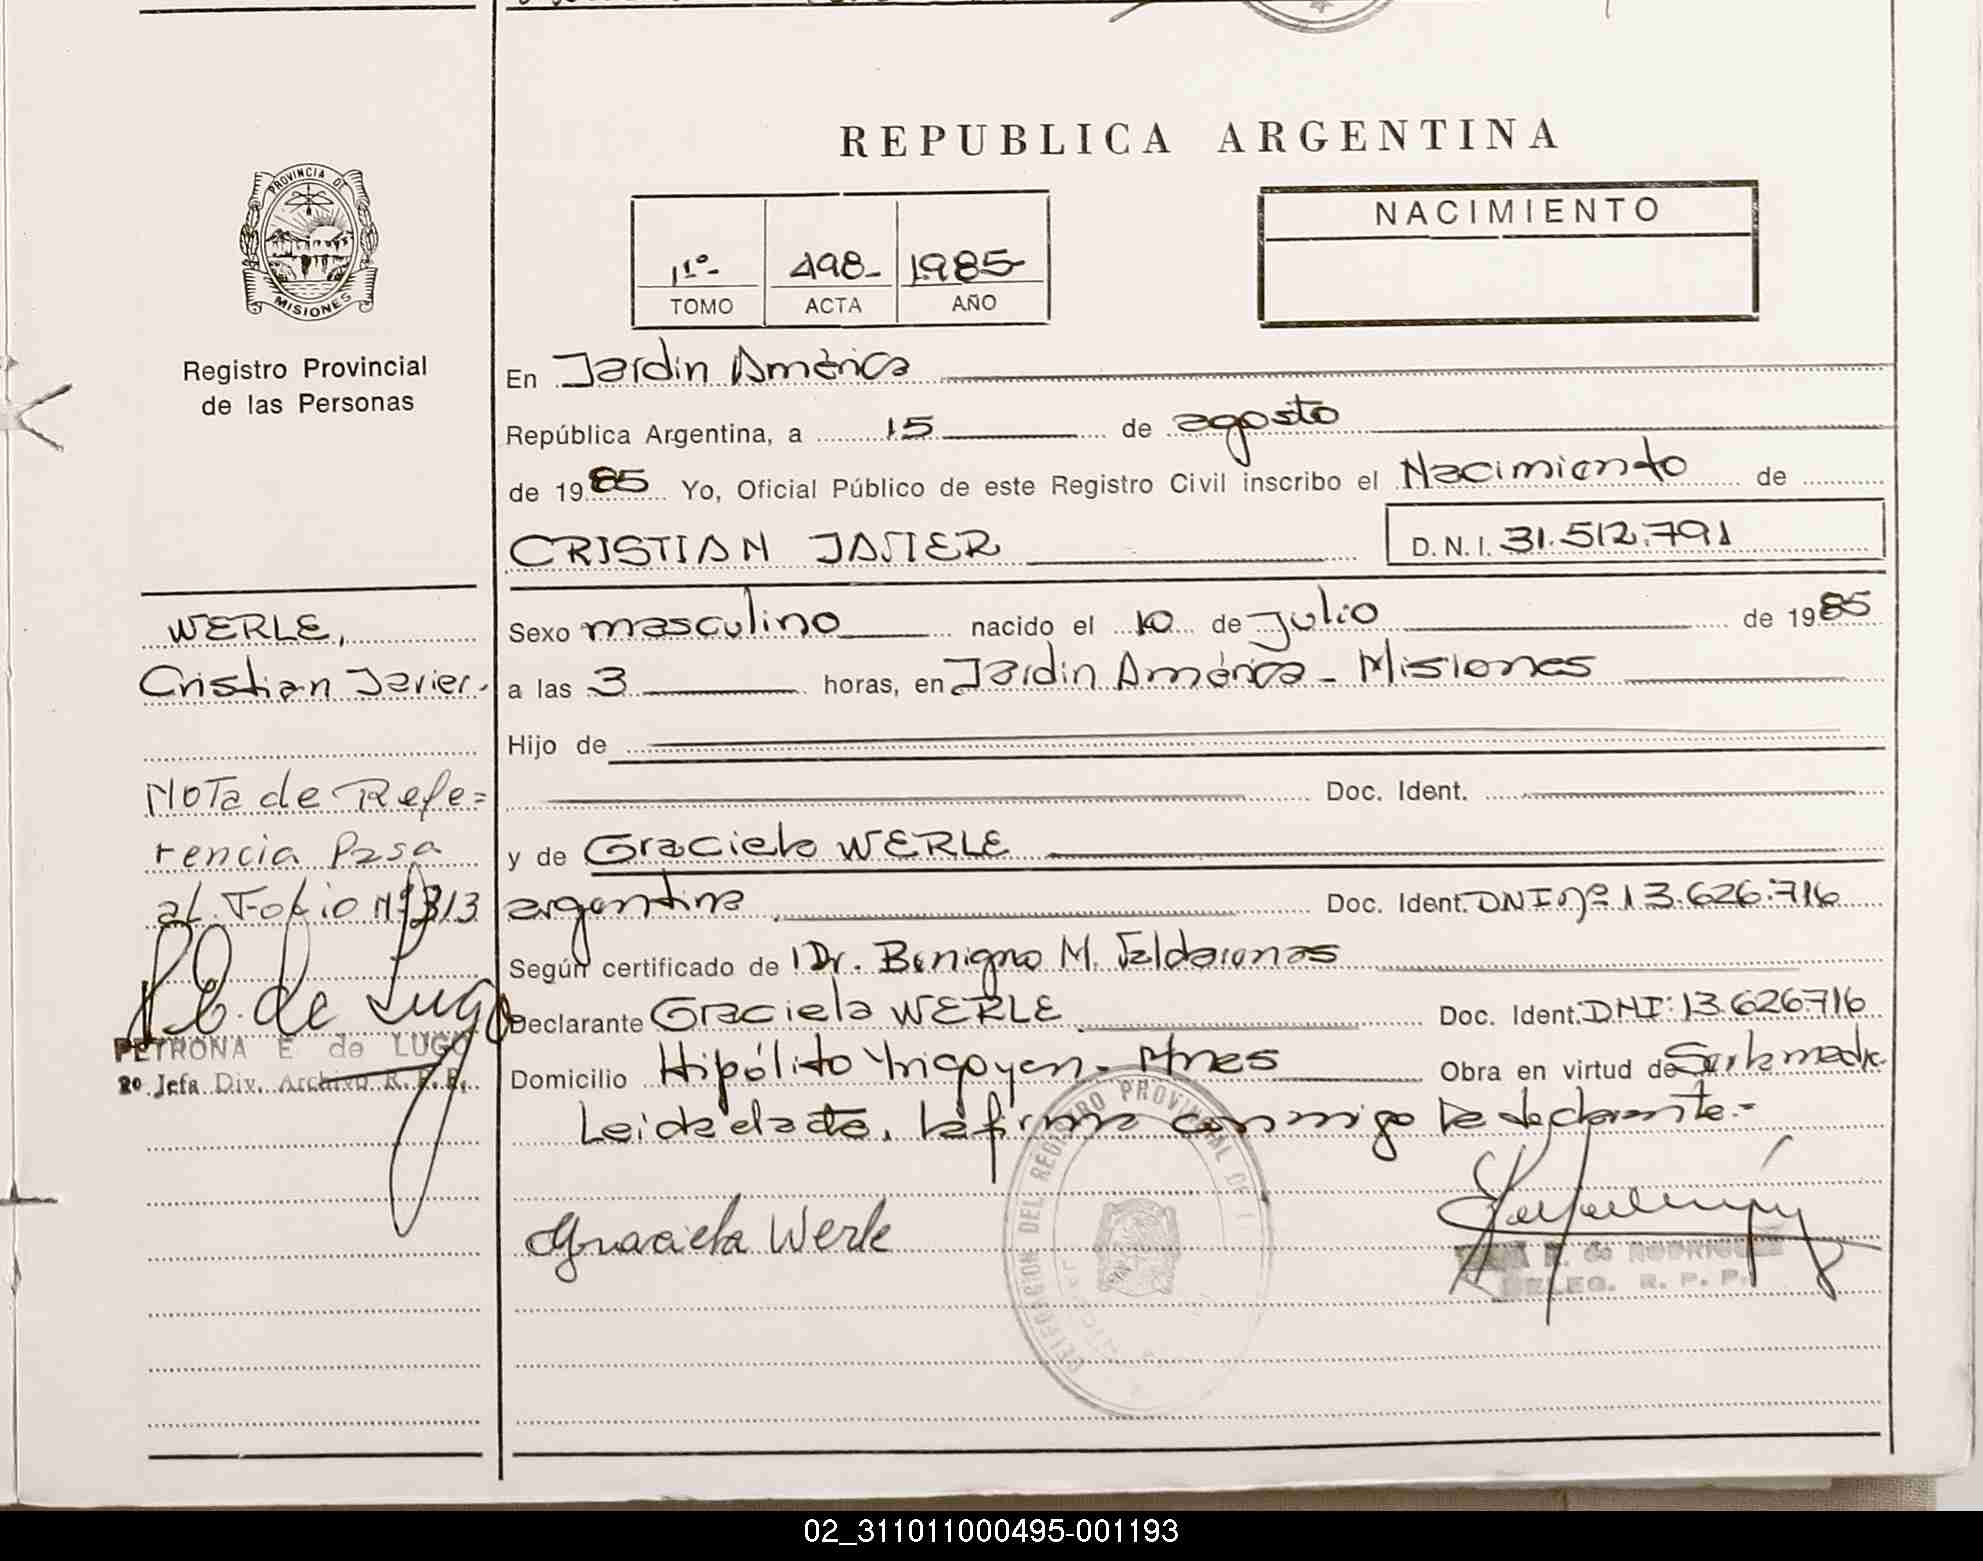 REPUBLICA ARGENTINA
PROVINCIA DE
MISIONES
Registro Provincial
de las Personas
1º- 498- 1985-
TOMO ACTA AÑO
NACIMIENTO
En Jardin América
República Argentina, a 15 de agosto
de 1985 Yo, Oficial Público de este Registro Civil inscribo el Nacimiento de
CRISTIAN JAVIER D. N. I. 31.512.791
WERLE,
Cristian Javier.
Sexo masculino nacido el 10 de Julio de 1985
a las 3 horas, en Jardin América - Misiones
Hijo de
Doc. Ident.
y de Graciela WERLE
argentina Doc. Ident. DNI nº 13.626.716
Según certificado de Dr. Benigno M.
Declarante Graciela WERLE Doc. Ident. DNI: 13.626716
Domicilio Hipólito Yrigoyen - Mnes Obra en virtud de
Leida el acta, la firma conmigo la declarante.=
Nota de Refe=
rencia Pasa
al Folio Nº 313
P. E. de Lugo
PETRONA E de LUGO
2º Jefa Div. Archivo R. P. P.
Graciela Werle
DELEGACION DEL REGISTRO PROVINCIAL DE
de RODRIGUEZ
DELEG. R. P. P.
02_311011000495-001193